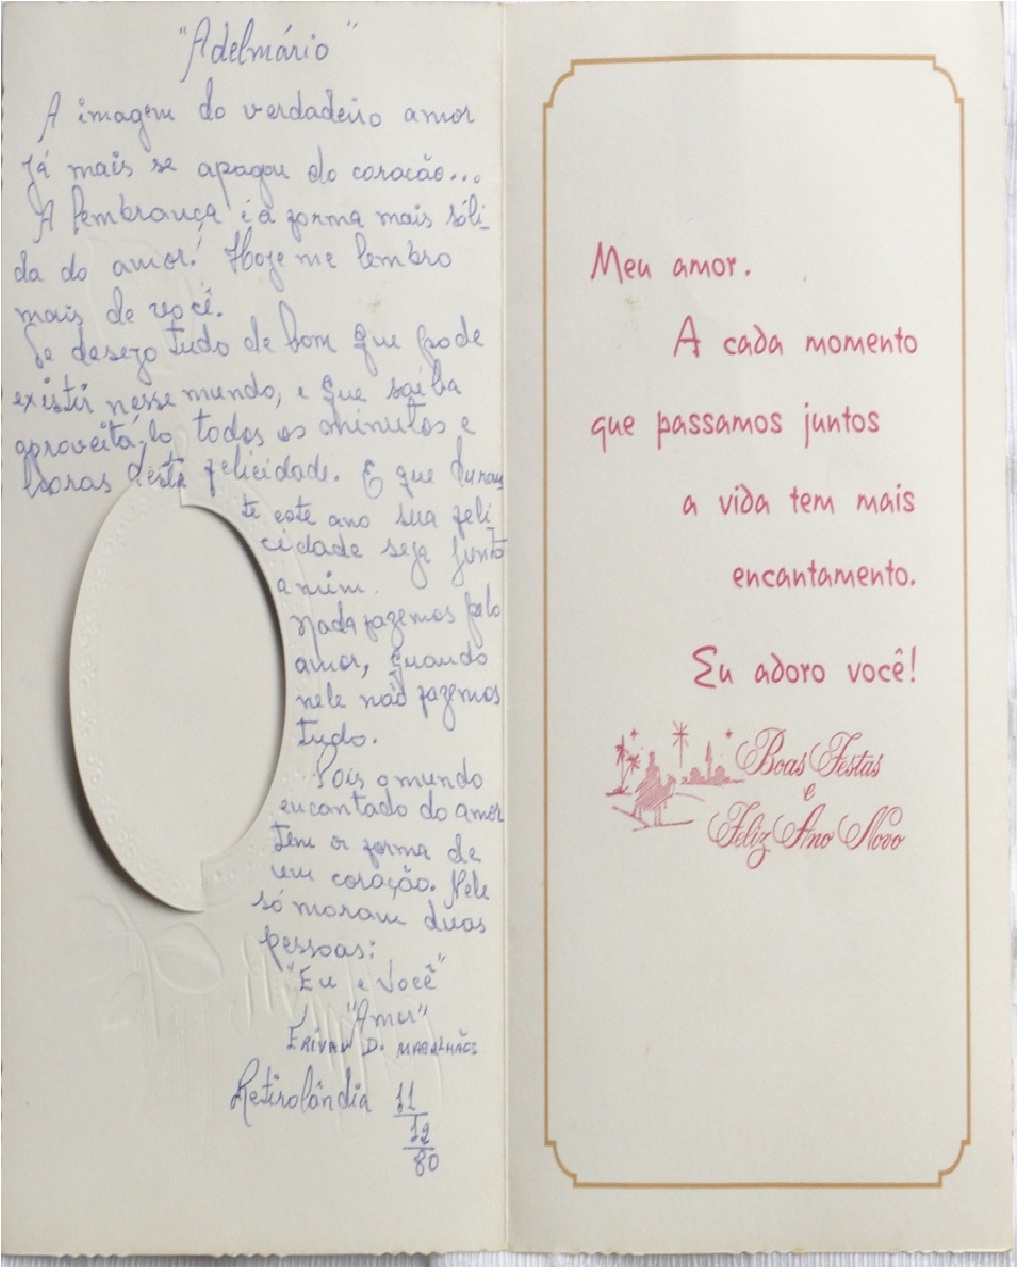 "Adelmário"
A imagem do verdadeiro amor
Já mais se apagou do coracão...
A lembrança é a forma mais sóli_
da do amor! Hoje me lembro
mais de você.
Te desejo tudo de bom que pode
existir nesse mundo, e que saiba
aproveitá-lo todos os minutos e
horas desta felicidade. E que duran
te este ano sua feli_
cidade seja junto
a mim.
Nada fazemos pelo
amor, quando
nele não fazemos
tudo.
Pois o mundo
encantado do amor
tem a forma de
um coração. Nele
só moram duas
pessoas:
"Eu e Você"
"Amor"
Erivan D. Magalhães
Retirolândia 11
12
80
Meu amor.
A cada momento
que passamos juntos
a vida tem mais
encantamento.
Eu adoro você!
Boas Festas
e
Feliz Ano Novo